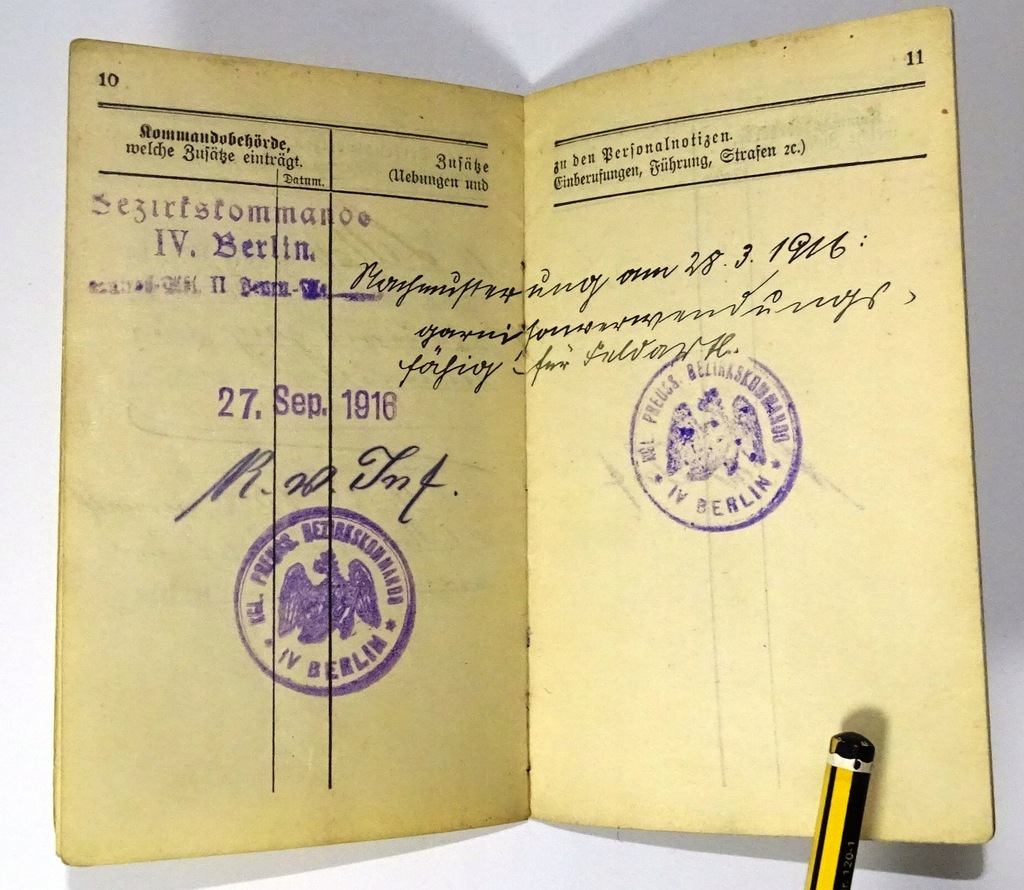 10
Kommandobehörde,
welche Zusätze einträgt.
Datum.
Zusätze
(Uebungen und
Bezirkskommando
IV. Berlin.
II
27. Sep. 1916
K. w. Inf.
KGL. PREUSS. BEZIRKSKOMMANDO
* IV BERLIN *
11
zu den Personalnotizen.
Einberufungen, Führung, Strafen ꝛc.)
Nachmusterung am 28. 3. 1916:
garnisonverwendungs-
fähig für Feldart.
KGL. PREUSS. BEZIRKSKOMMANDO
* IV BERLIN *
120-1